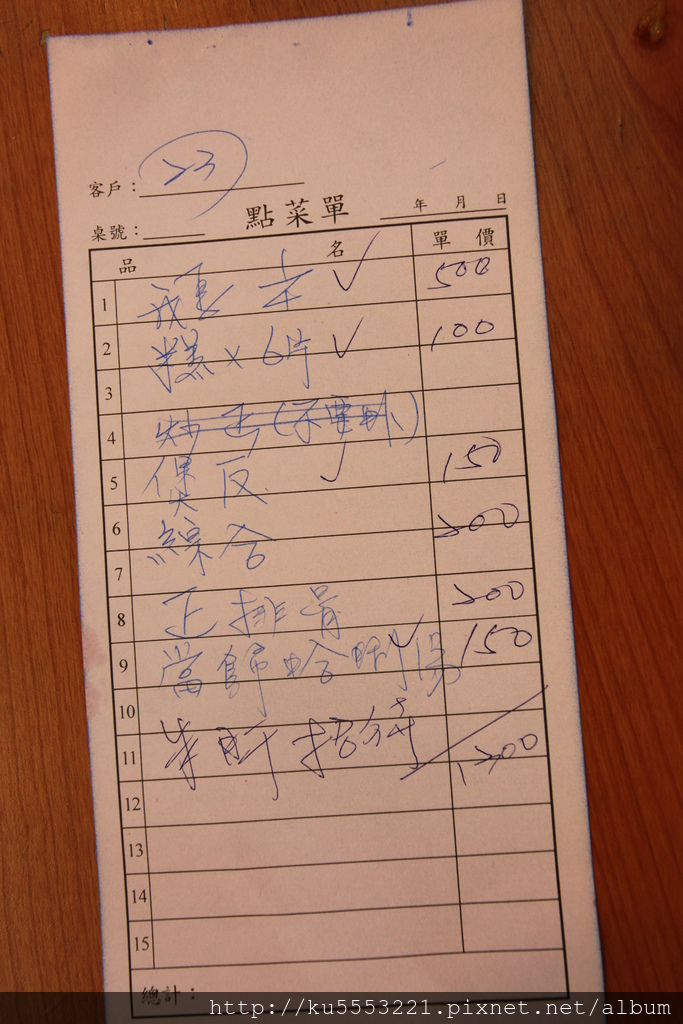 客戶：23
點菜單 年 月 日
桌號：
品 名 單 價
500
1
2 糕×6片 100
3
4 (不要辣)
5 煲反 150
6
綜合 200
7
8 正排骨 200
9 當歸蛤蜊湯 150
10
11 招待 1300
12
13
14
15
總計：
http://ku5553221.pixnet.net/album